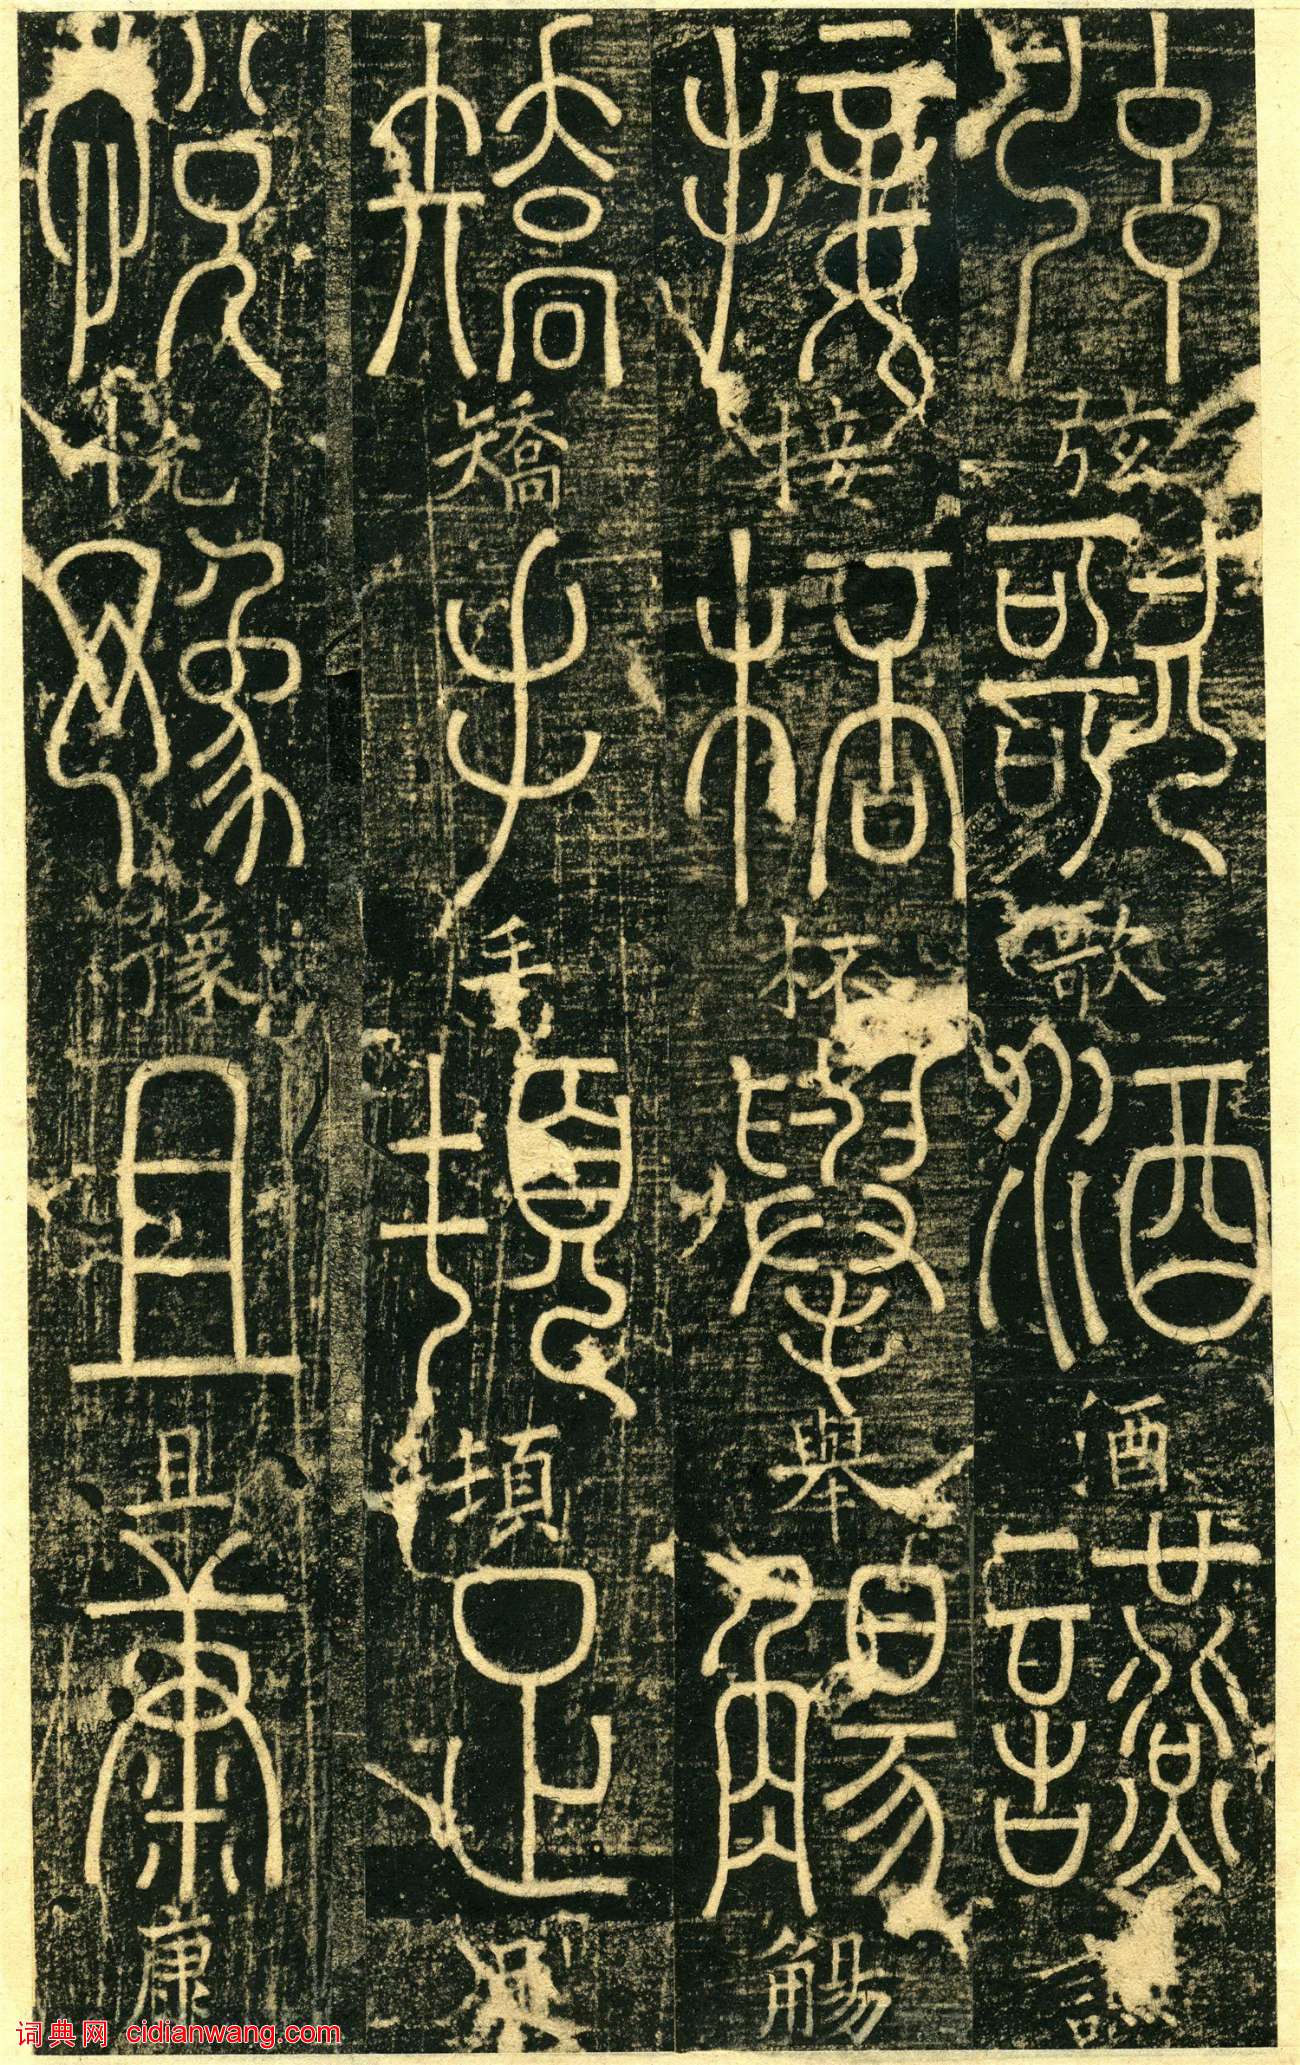 弦歌酒讌
接杯舉觴
矯手頓足
悅豫且康
词典网 cidianwang.com